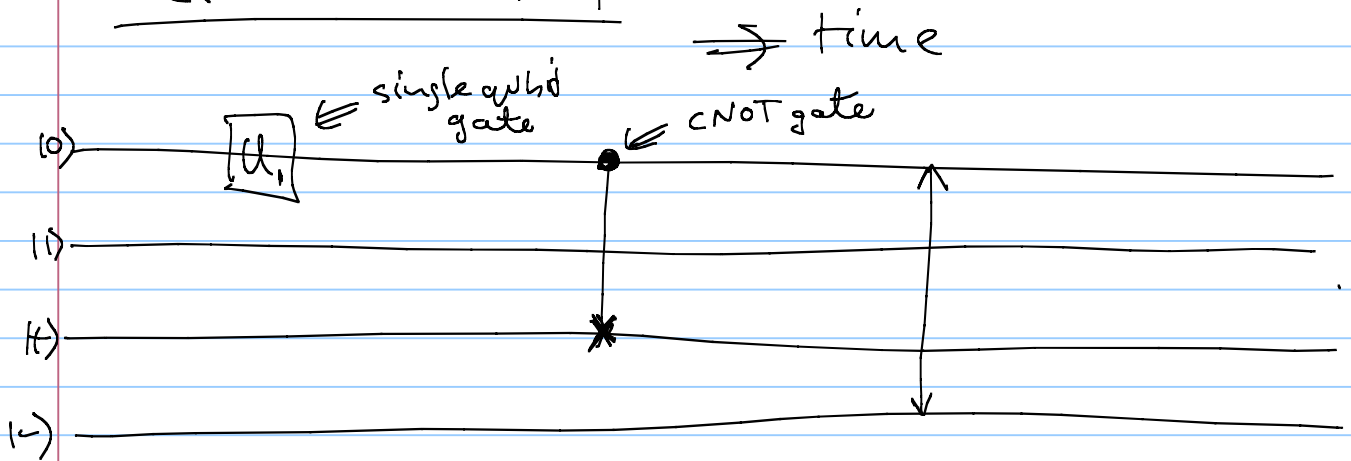 ⇒ time
single qubit
gate
CNOT gate
|0⟩
U₁
|1⟩
|+⟩
|-⟩